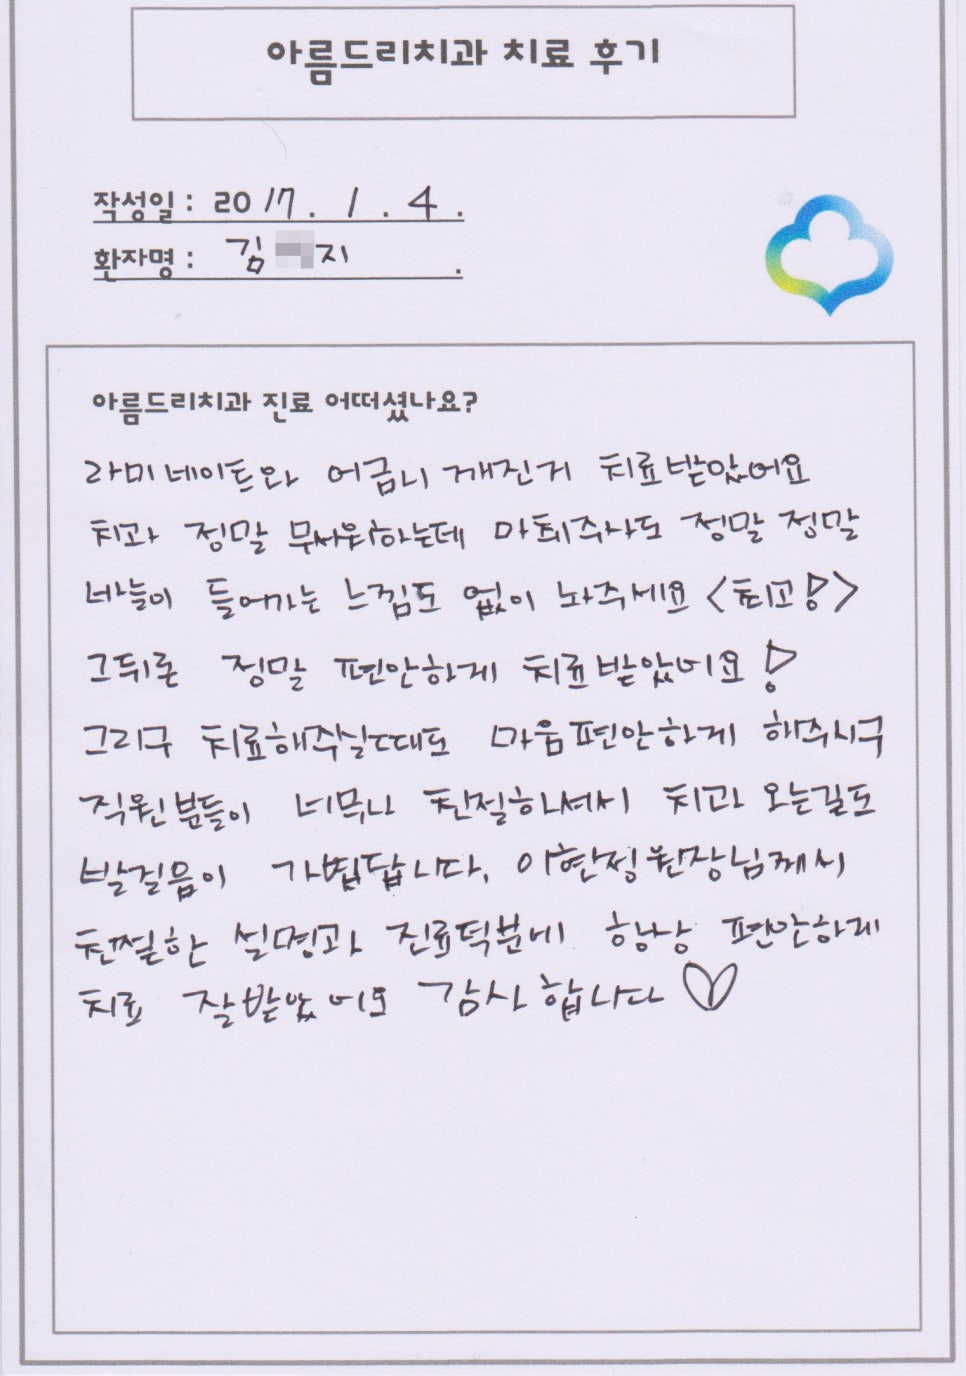 아름드리치과 치료 후기
작성일 : 2017 . 1 . 4 .
환자명 : 김 지 .
아름드리치과 진료 어떠셨나요?
라미네이트와 어금니 깨진거 치료받았어요
치과 정말 무서워하는데 마취주사도 정말 정말
바늘이 들어가는 느낌도 없이 놔주세요 <최고!>
그뒤론 정말 편안하게 치료받았어요!
그리구 치료해주실때도 마음편안하게 해주시구
직원분들이 너무나 친절하셔서 치과 오는길도
발걸음이 가볍답니다. 이현정원장님께서
친절한 설명과 진료덕분에 항상 편안하게
치료 잘받았어요 감사합니다 ♡